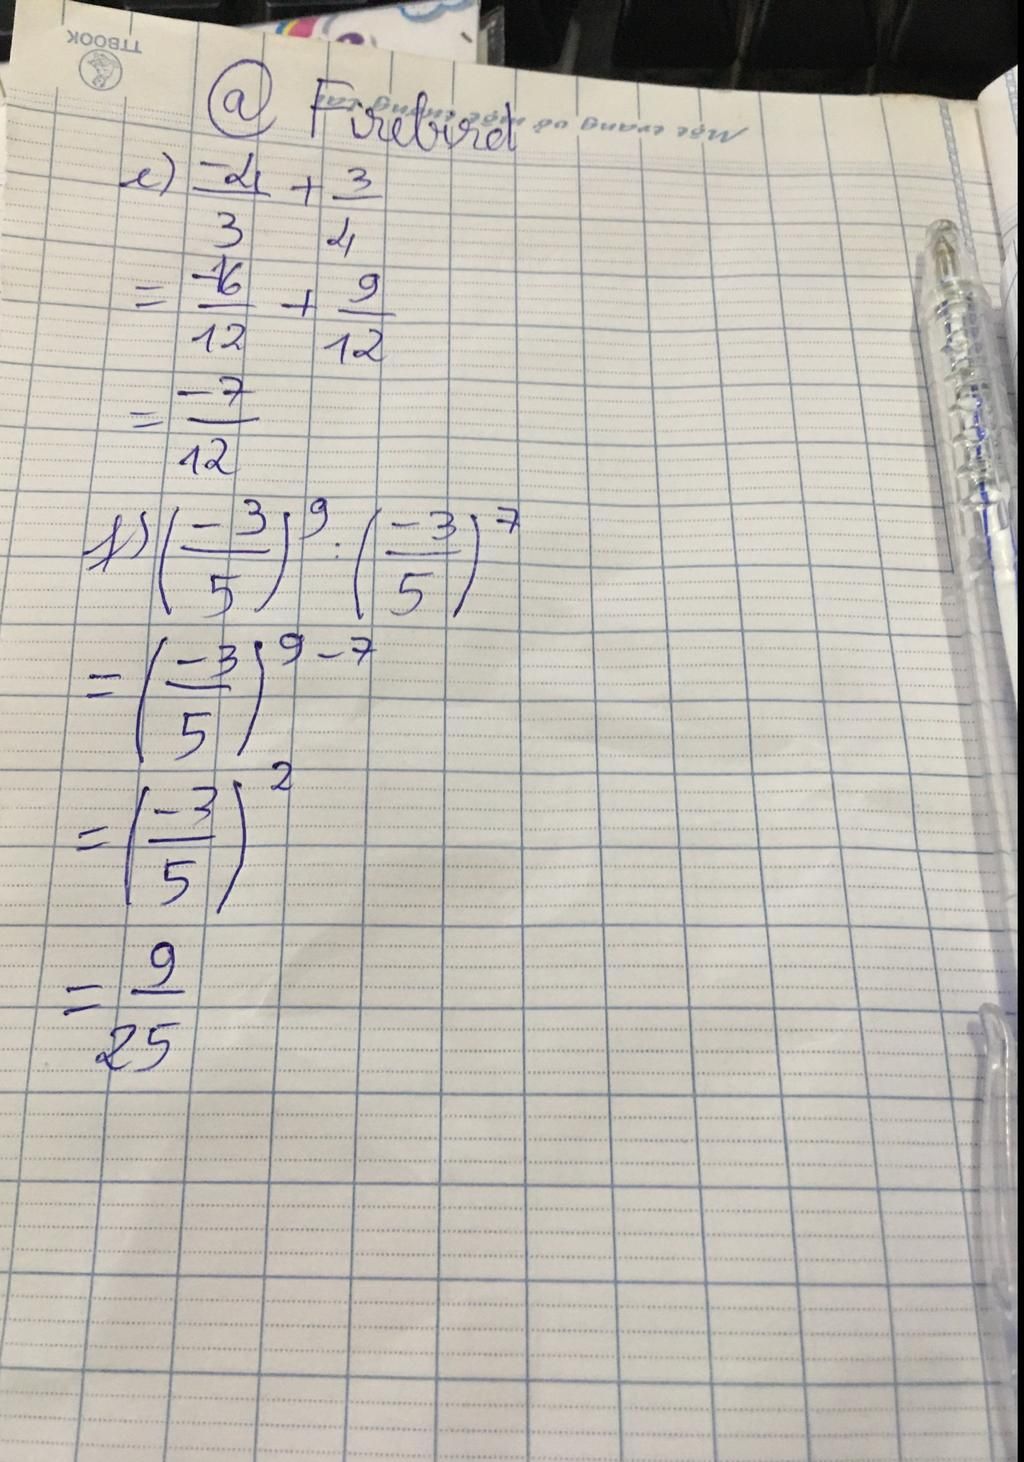 TTBOOK
Một trang vở một tương lai
@ Firebird
e) -4/3 + 3/4
= -16/12 + 9/12
= -7/12
f) (-3/5)^9 : (-3/5)^7
= (-3/5)^9-7
= (-3/5)^2
= 9/25